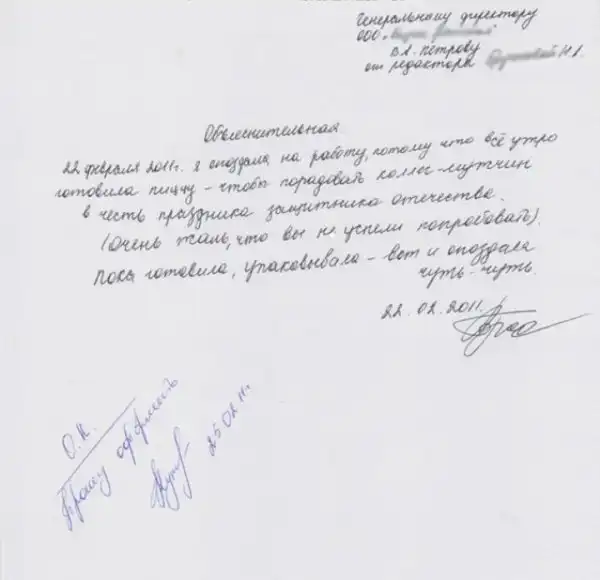 Генеральному директору
ООО «
В.А. Петрову
от редактора Н.А.
Объяснительная
22 февраля 2011г. я опоздала на работу, потому что всё утро
готовила пиццу – чтобы порадовать коллег-мужчин
в честь праздника защитника отечества.
(Очень жаль, что вы не успели попробовать).
Пока готовила, упаковывала – вот и опоздала
чуть-чуть.
22.02.2011.
О.К.
Прошу оформить
25 02 11г.